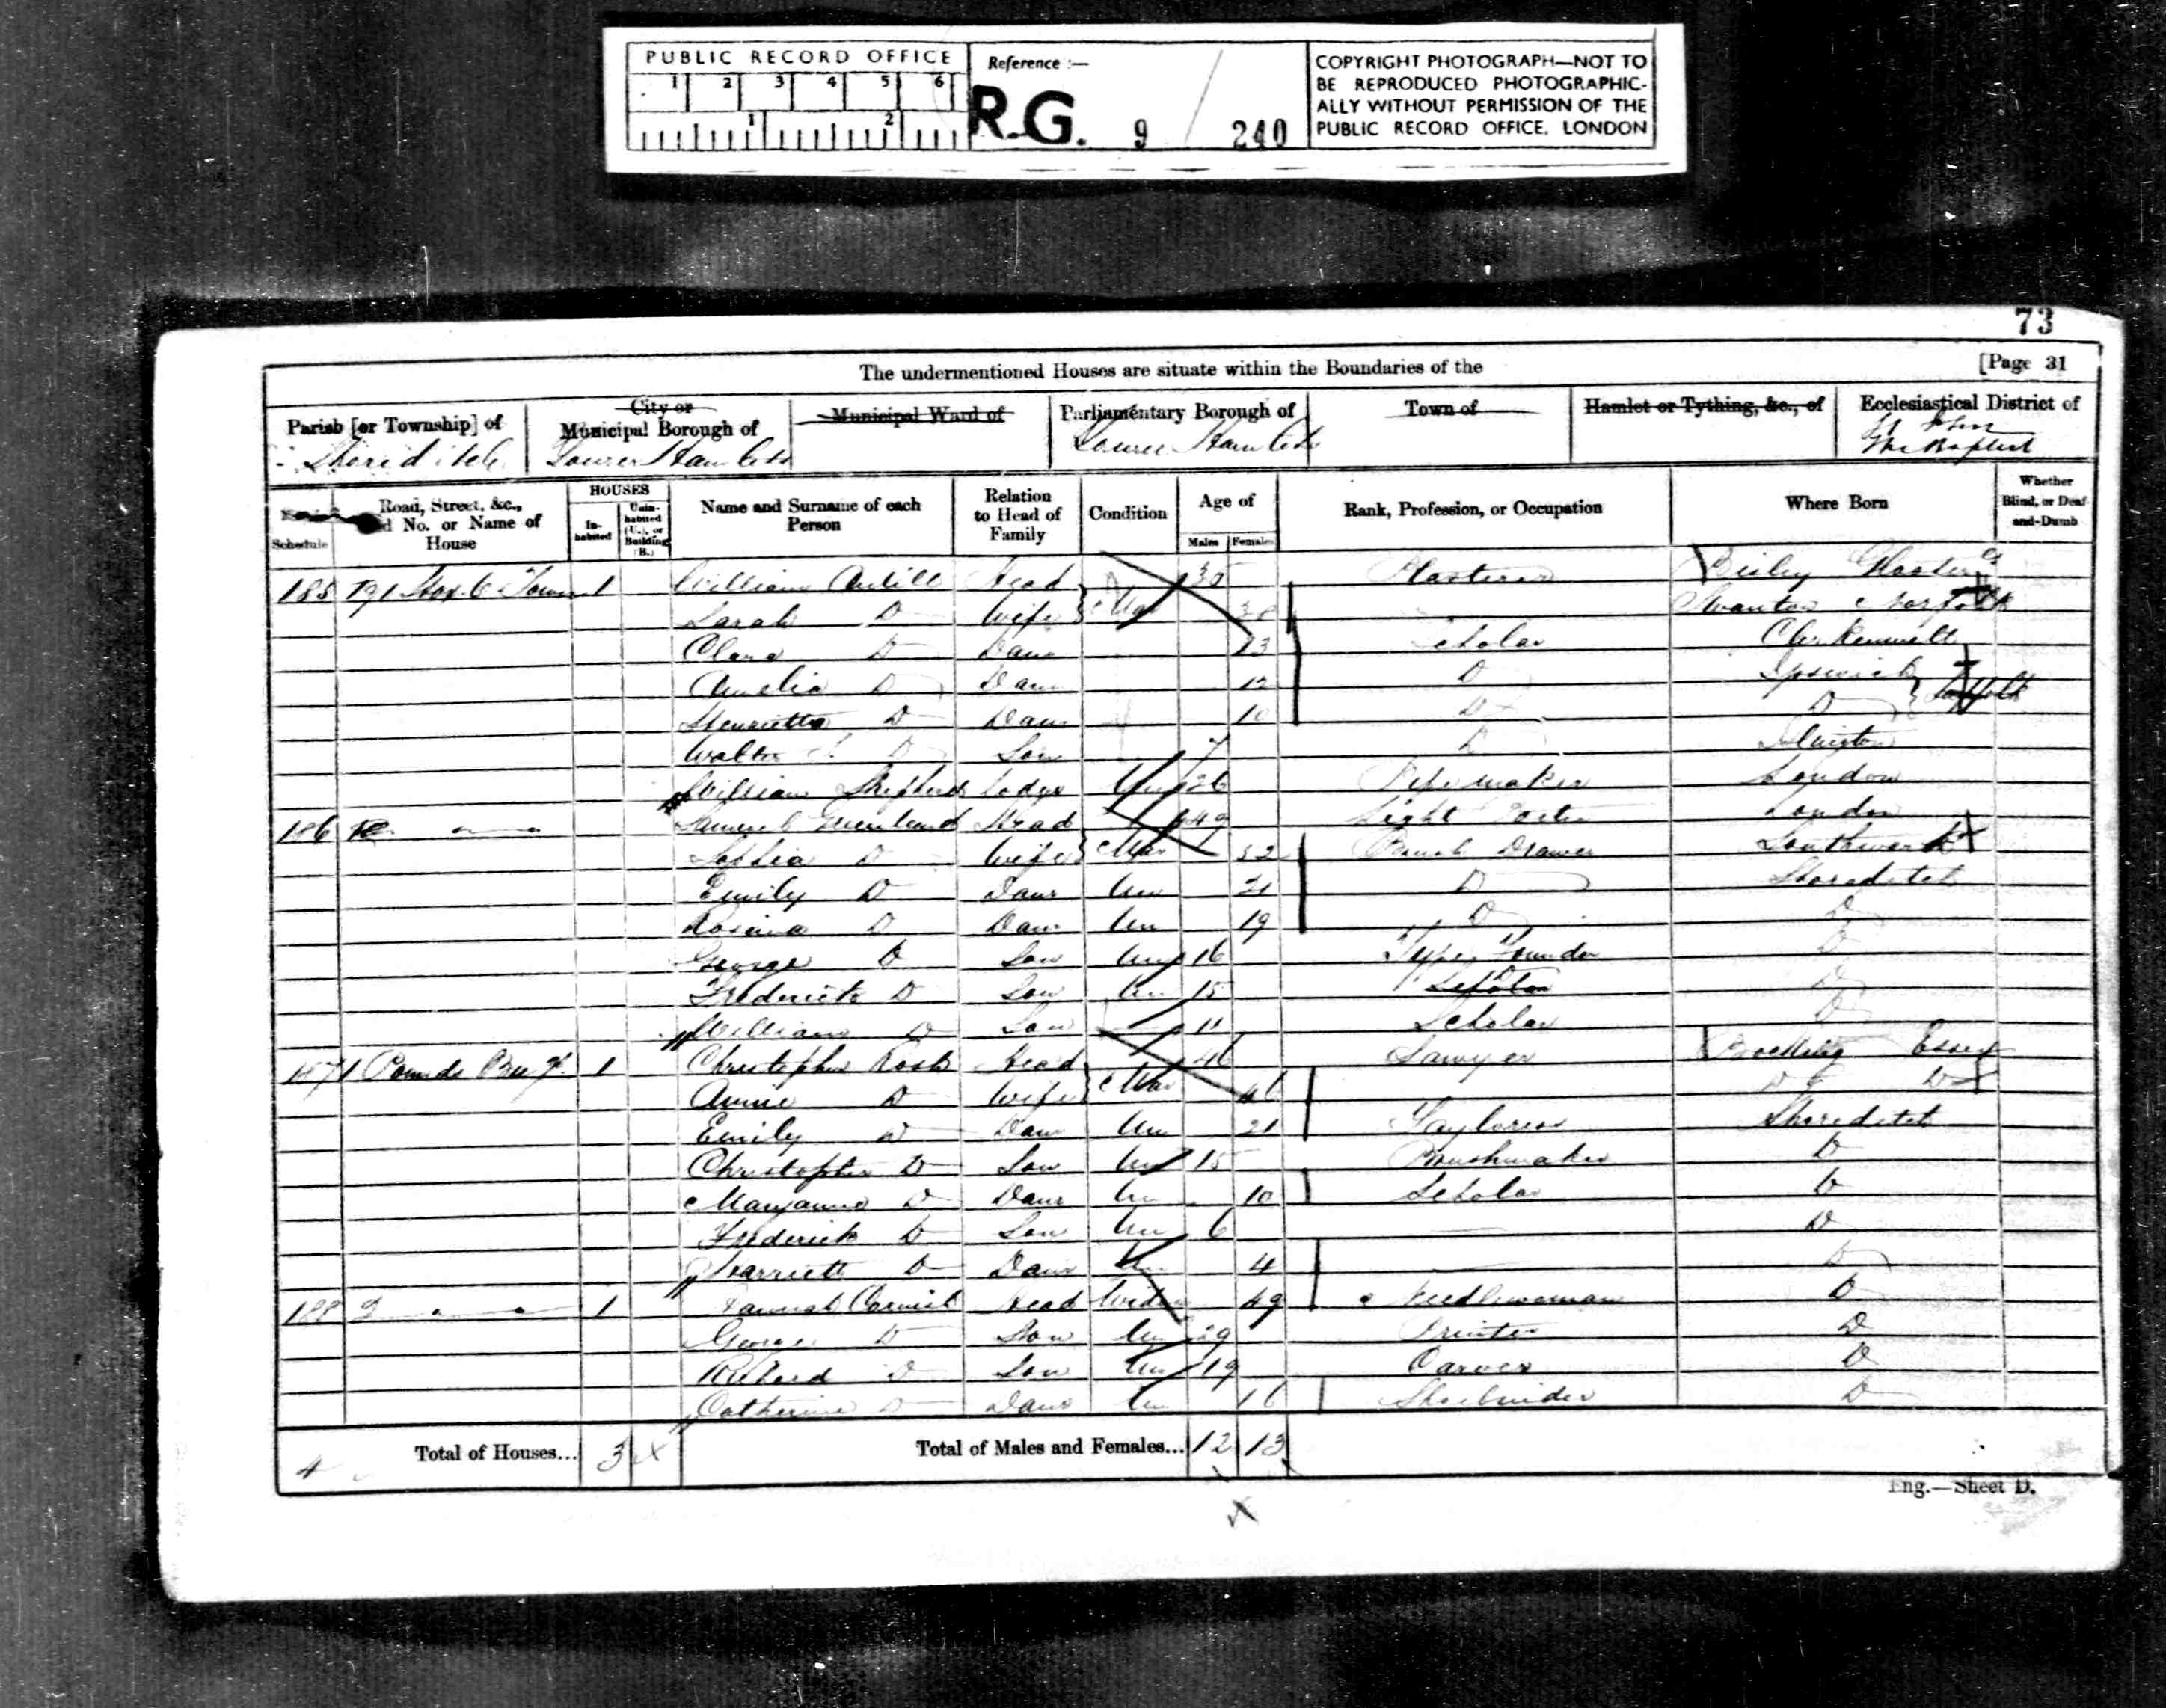 PUBLIC RECORD OFFICE
1 2 3 4 5 6
1 2
Reference :—
R.G. 9 / 240
COPYRIGHT PHOTOGRAPH—NOT TO
BE REPRODUCED PHOTOGRAPHIC-
ALLY WITHOUT PERMISSION OF THE
PUBLIC RECORD OFFICE, LONDON
73
The undermentioned Houses are situate within the Boundaries of the [Page 31
Parish [or Township] of
Shoreditch
City or
Municipal Borough of
Tower Hamlets
Municipal Ward of
Parliamentary Borough of
Tower Hamlets
Town of
Hamlet or Tything, &c., of
Ecclesiastical District of
St John
the Baptist
Schedule
Road, Street, &c.,
No. or Name of
House
HOUSES
In-
habited
Unin-
habited
(U.), or
Building
(B.)
Name and Surname of each
Person
Relation
to Head of
Family
Condition
Age of
Males Females
Rank, Profession, or Occupation
Where Born
Whether
Blind, or Deaf-
and-Dumb
185 1 William Head Plasterer Bisley
Sarah D Wife Mar Norfolk
Clara D Daur 13 Scholar Clerkenwell
Amelia D Daur 12 D Ipswich Suffolk
Henrietta D Daur 10 D D
Walter D Son 7 D Islington
William Shepherd Lodger Un 26 Pipe maker London
186 Head 49 Light Porter London
Sophia D Wife Mar 52 Brush Drawer Southwark
Emily D Daur Un 21 D Shoreditch
Rosina D Daur Un 19 D D
George D Son Un 16 Type Founder D
Frederick D Son Un 15 D D
William D Son 11 Scholar D
187 1 Pounds 1 Christopher Head 46 Sawyer Bocking Essex
Annie D Wife Mar 46 D D
Emily D Daur Un 21 Tayloress Shoreditch
Christopher D Son Un 15 Brushmaker D
Maryanne D Daur Un 10 Scholar D
Frederick D Son Un 6 D
Harriett D Daur Un 4 D
188 2 1 Hannah Cornish Head Widow 49 Needlewoman D
George D Son Un 29 Printer D
Richard D Son Un 19 Carver D
Catherine D Daur Un 16 Shoebinder D
4 Total of Houses... 3 X Total of Males and Females... 12 13
Eng.—Sheet D.